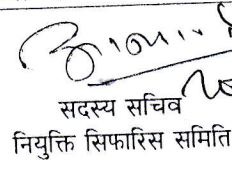 सदस्य सचिव
नियुक्ति सिफारिस समिति